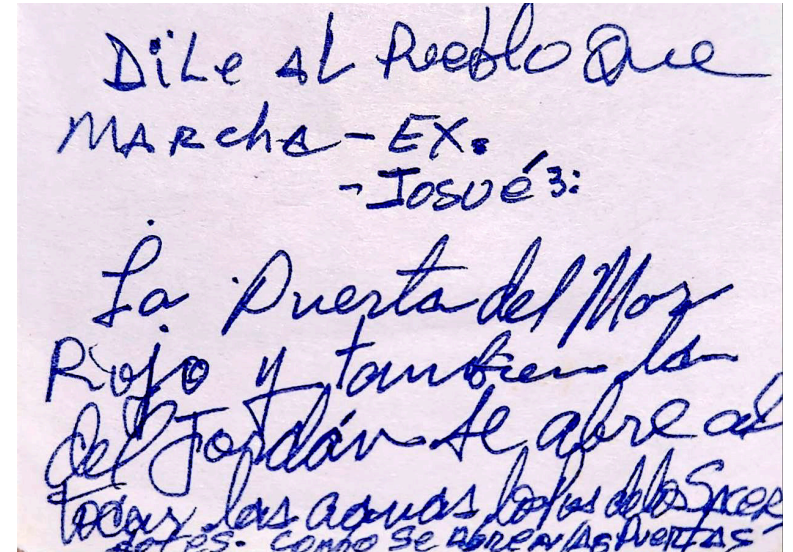 Dile al Pueblo Que
MARcha - EX.
- Josué 3:
La Puerta del Mar
Rojo y tambien la
del Jordán se abre al
tocar las aguas los de los SACER
DOTES. COMO SE ABREN LAS PUERTAS